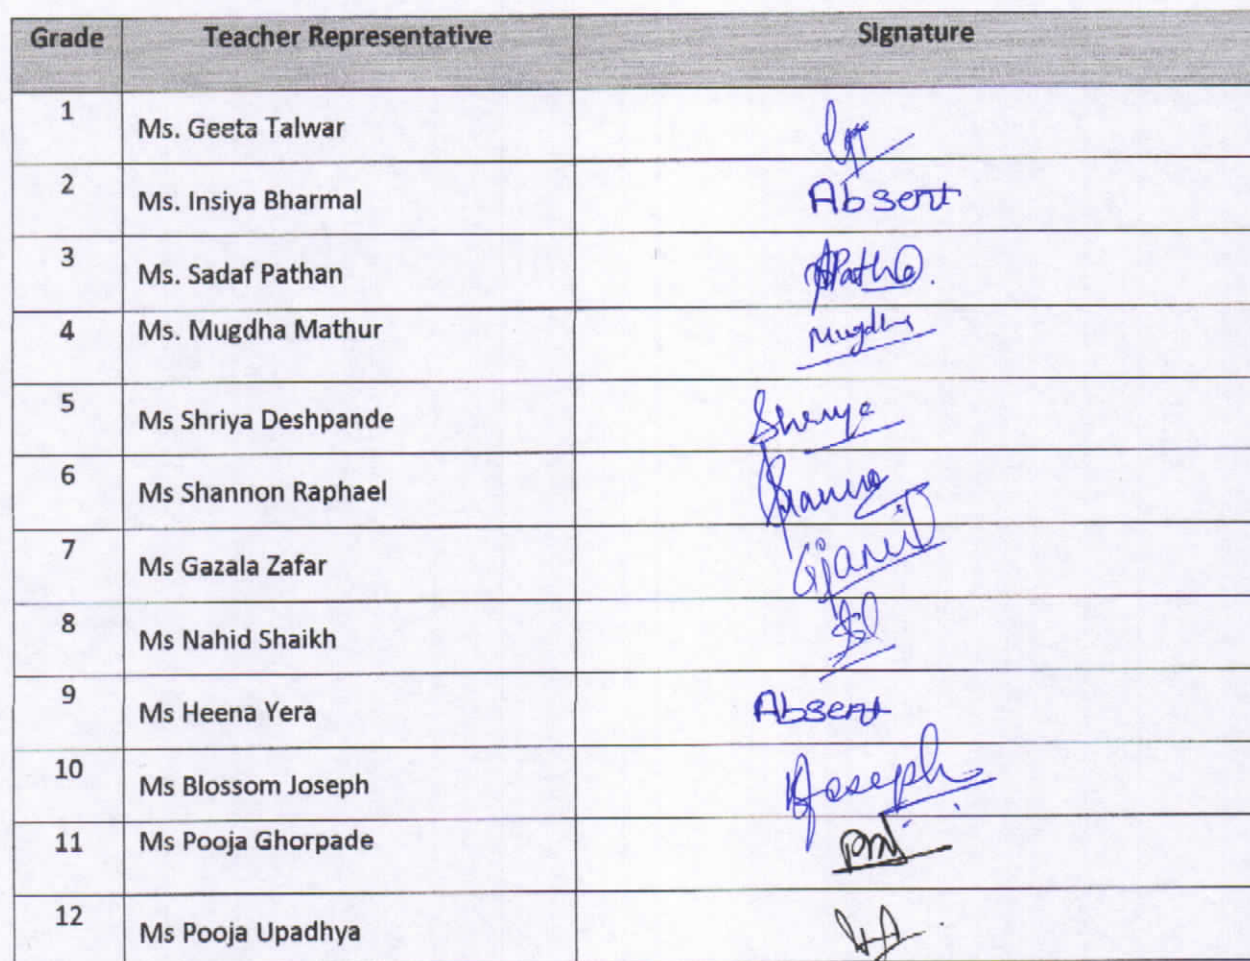 Grade Teacher Representative Signature
1 Ms. Geeta Talwar
2 Ms. Insiya Bharmal Absent
3 Ms. Sadaf Pathan
4 Ms. Mugdha Mathur Mugdha
5 Ms Shriya Deshpande
6 Ms Shannon Raphael
7 Ms Gazala Zafar
8 Ms Nahid Shaikh
9 Ms Heena Yera Absent
10 Ms Blossom Joseph Joseph
11 Ms Pooja Ghorpade
12 Ms Pooja Upadhya